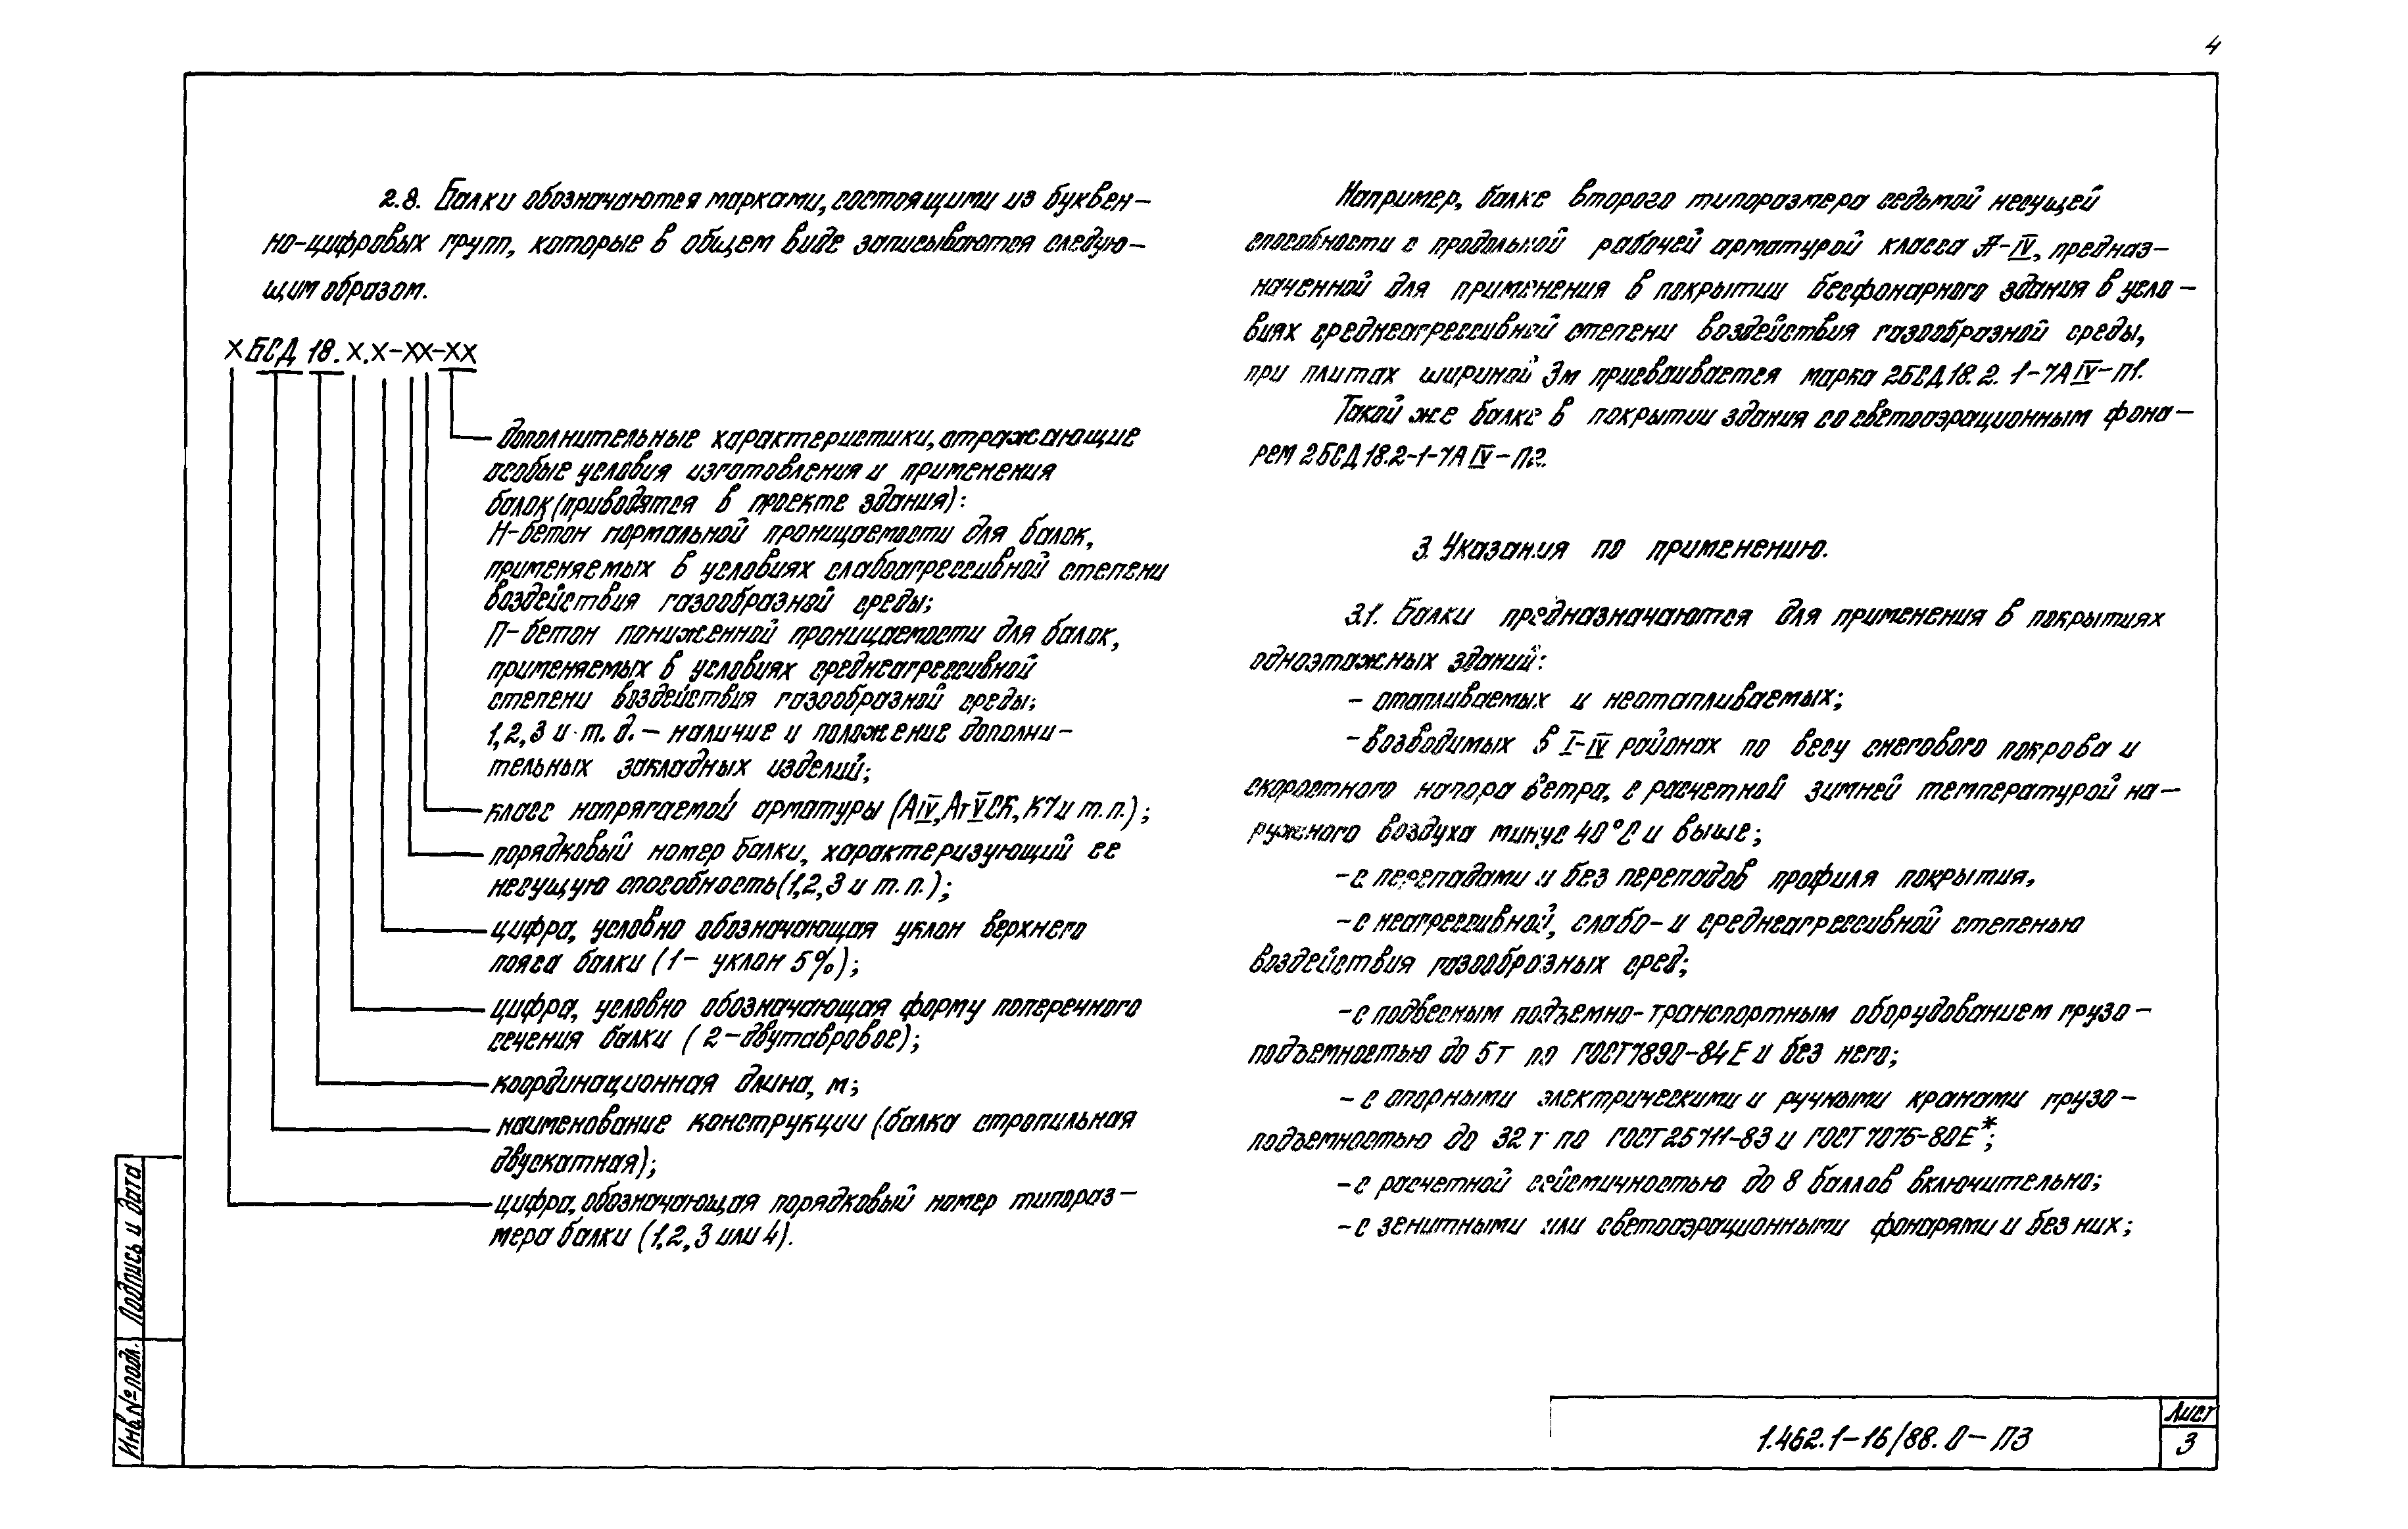 4
2.8. Балки обозначаются марками, состоящими из буквен-
но-цифровых групп, которые в общем виде записываются следую-
щим образом.
X БСД 18. X. X-XX-XX
дополнительные характеристики, отражающие
особые условия изготовления и применения
балок (приводятся в проекте здания):
Н-бетон нормальной проницаемости для балок,
применяемых в условиях слабоагрессивной степени
воздействия газообразной среды;
П-бетон пониженной проницаемости для балок,
применяемых в условиях среднеагрессивной
степени воздействия газообразной среды;
1,2,3 и т.д. - наличие и положение дополни-
тельных закладных изделий;
класс напрягаемой арматуры (АIV, АтVСК, К7 и т.п.);
порядковый номер балки, характеризующий ее
несущую способность (1,2,3 и т.п.);
цифра, условно обозначающая уклон верхнего
пояса балки (1- уклон 5%);
цифра, условно обозначающая форму поперечного
сечения балки (2-двутавровое);
координационная длина, м;
наименование конструкции (балка стропильная
двускатная);
цифра, обозначающая порядковый номер типораз-
мера балки (1,2,3 или 4).
Например, балке второго типоразмера седьмой несущей
способности с продольной рабочей арматурой класса А-IV, предназ-
наченной для применения в покрытии бесфонарного здания в усло-
виях среднеагрессивной степени воздействия газообразной среды,
при плитах шириной 3м присваивается марка 2БСД18.2. 1-7АIV-П1.
Такой же балке в покрытии здания со светоаэрационным фона-
рем 2БСД18.2-1-7АIV-П2.
3. Указания по применению.
3.1. Балки предназначаются для применения в покрытиях
одноэтажных зданий:
- отапливаемых и неотапливаемых;
- возводимых в I-IV районах по весу снегового покрова и
скоростного напора ветра, с расчетной зимней температурой на-
ружного воздуха минус 40°С и выше;
- с перепадами и без перепадов профиля покрытия,
- с неагрессивной, слабо- и среднеагрессивной степенью
воздействия газообразных сред;
- с подвесным подъемно-транспортным оборудованием грузо-
подъемностью до 5т по ГОСТ 7890-84Е и без него;
- с опорными электрическими и ручными кранами грузо-
подъемностью до 32т по ГОСТ 25711-83 и ГОСТ 7075-80Е*;
- с расчетной сейсмичностью до 8 баллов включительно;
- с зенитными или светоаэрационными фонарями и без них;
Подпись и дата
Инв.№подл.
1.462.1-16/88.0-ПЗ
Лист
3